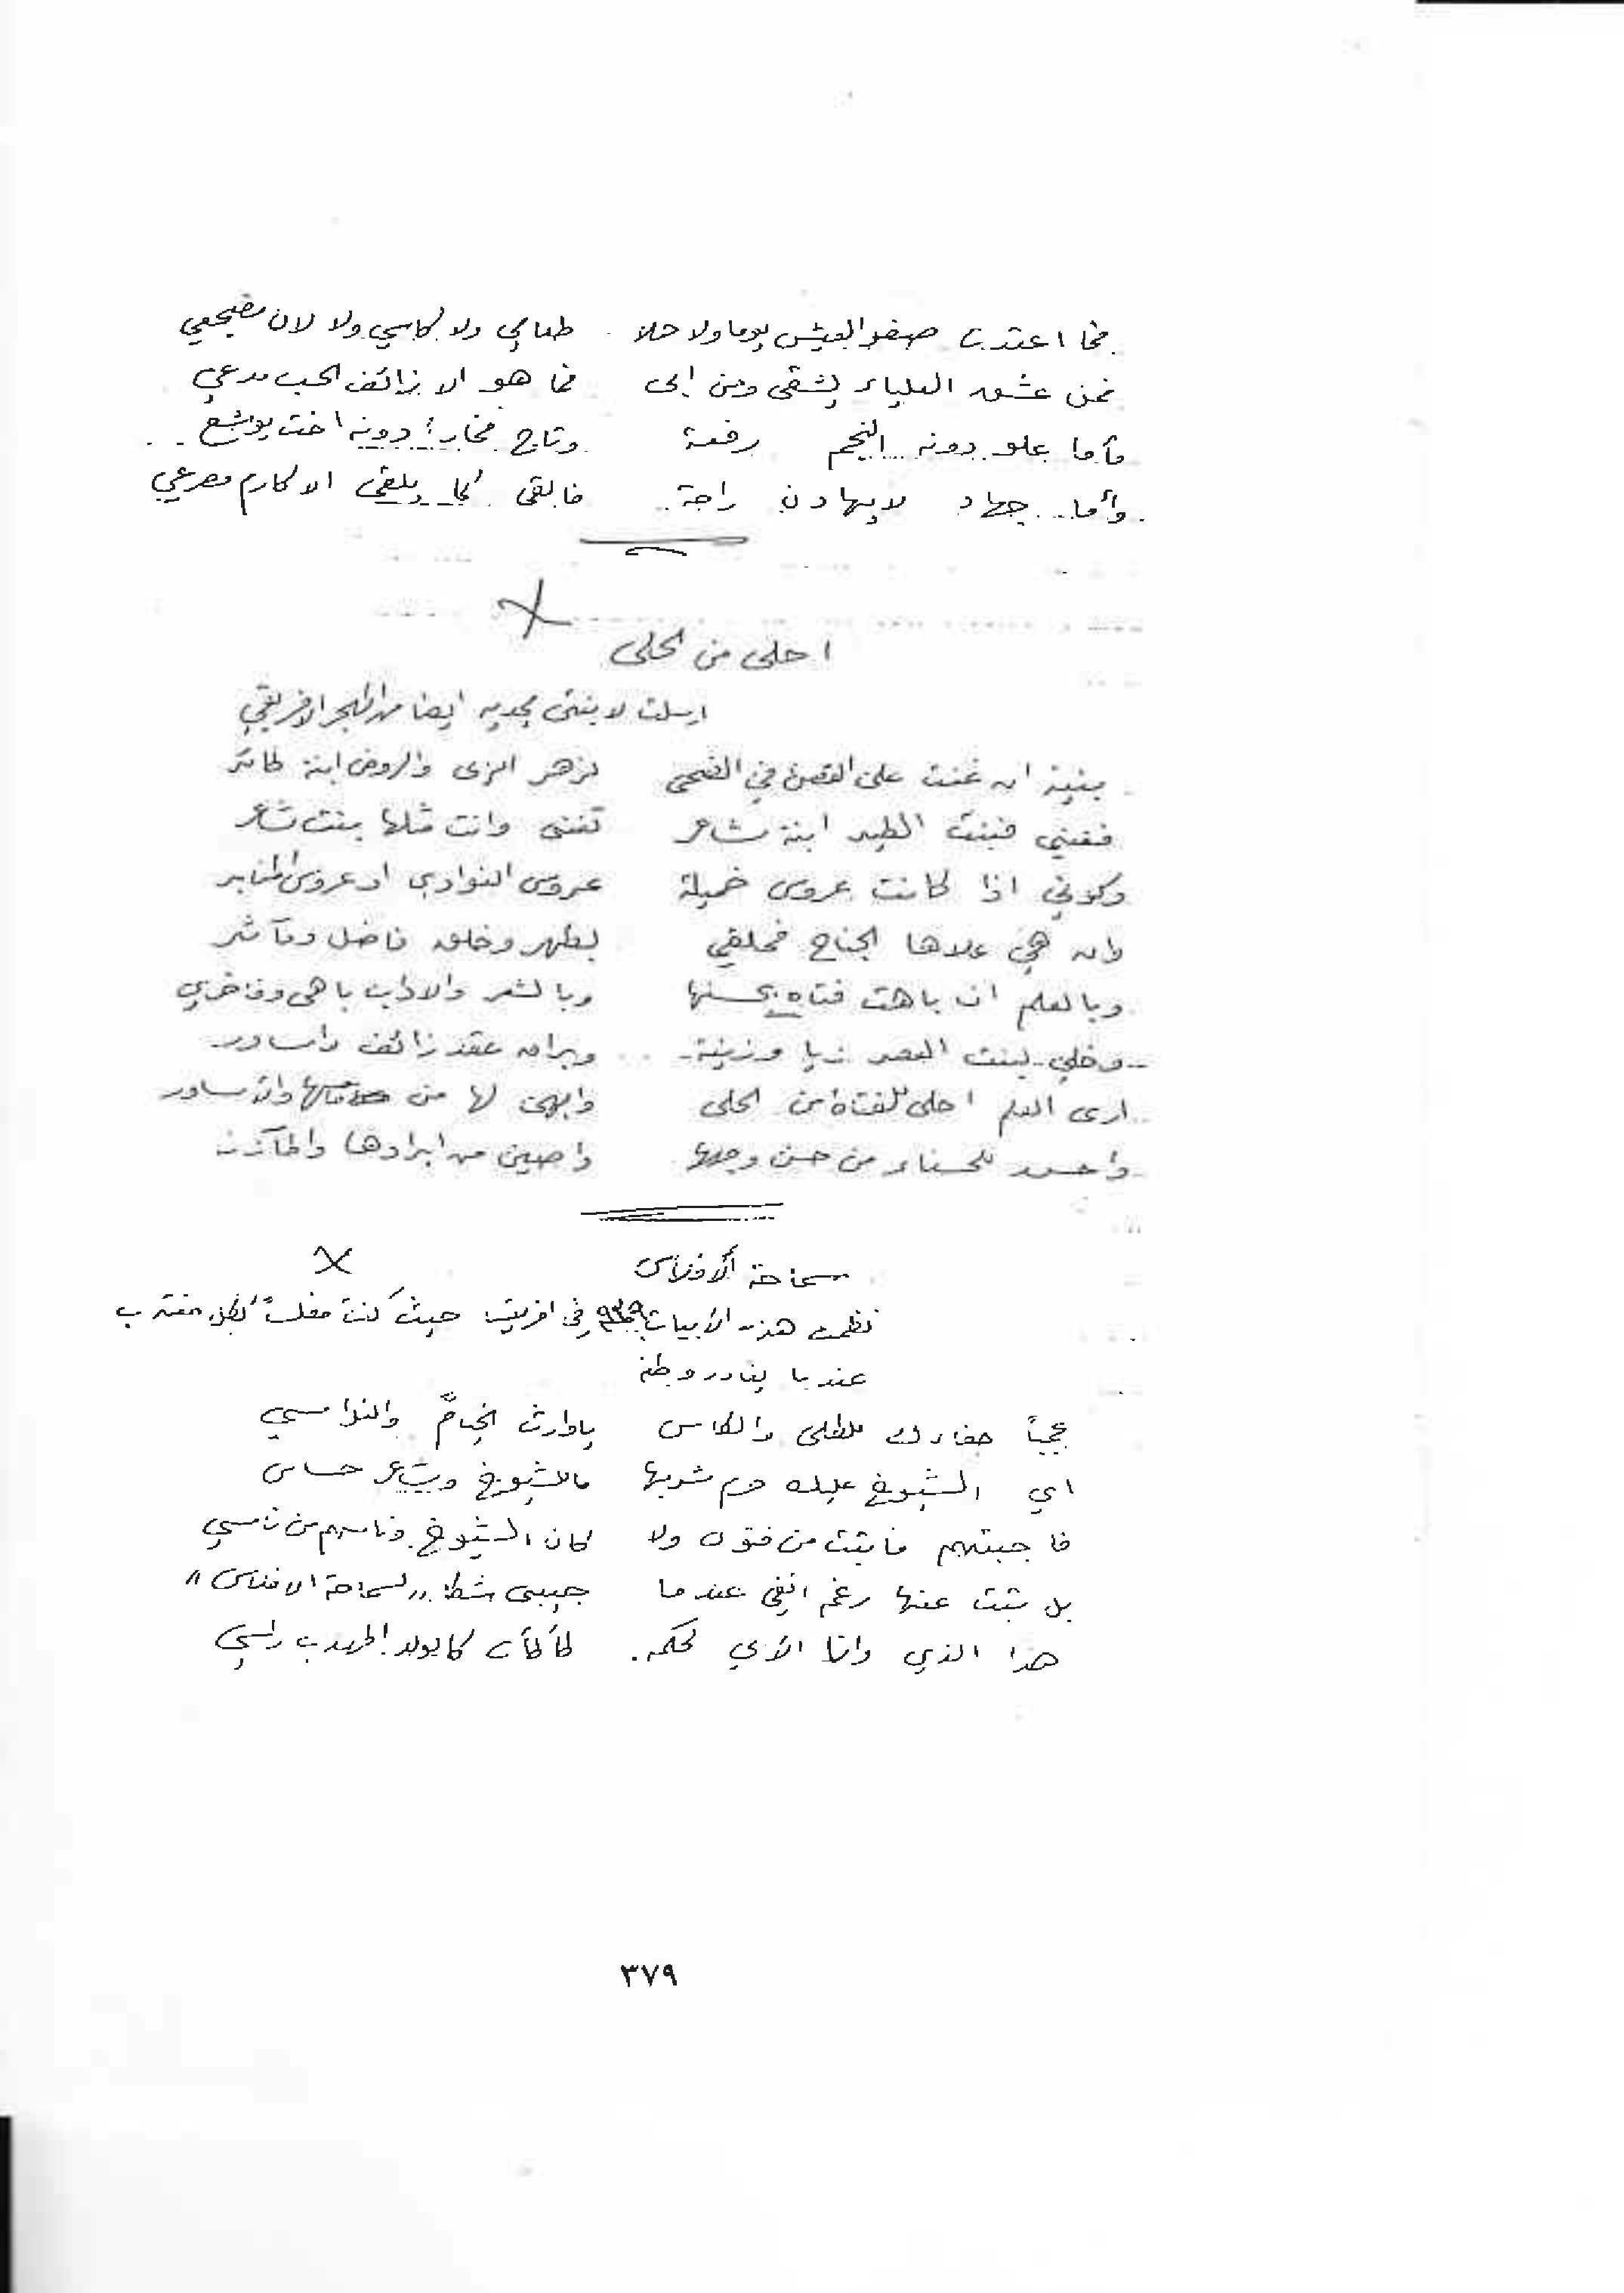 فما اعتدت صفو العيش يوما ولا حلا طعامي ولا كاسي ولا لان مضجعي
فمن عشق العلياء يشقى ومن ابى فما هو الا زائف الحب مدعي
فأما علو دونه النجم رفعة وتاج فخار دونه اخت يوشع
وأما جهاد لا يهادن راحة فالقى كما يلقى الاكارم مصرعي
احلى من الحلى
ارسلت لابنتي ايضا من المهجر الافريقي
بنيتي ان غنت على الغصن في الضحى لزهر الربى والروض ابنة طائر
فغني فبنت الطير ابنة شاعر تغنى وانت مثلها بنت شاعر
وكوني اذا كانت عروس خميلة عروس النوادي او عروس المنابر
وان هي علاها الجناح فحلقي بطهر وخلق فاضل ومآثر
وبالعلم ان باهت فتاة بحسنها وبالشعر والاداب باهي وفاخري
وخلي لبنت العصر زيا وزينة وبراق عقد زائف واساور
ارى العلم احلى للفتاة من الحلى وابهى لها من والاساور
واحسن للحسناء من حسن وجهها واصين من ابرادها والمآزر
سماحة الافلاس
نظمت هذه الأبيات في افريقيا حيث كنت مفلساً ككل مغترب
عندما يغادر وطنه
عجباً جفاءك للطلى والكاس يا وارث الخيام والنواسي
اي الشيوخ عليك حرم شربها ما للشيوخ وشاعر حساس
فاجبتهم ما تبت من فتوى ولا كان الشيوخ وناسهم من ناسي
بل تبت عنها رغم انفي عندما جيبي شكا "لسماحة الافلاس"
هذا الذي وانا الأبي لحكمه طأطأت كالولد المهذب راسي
٣٧٩